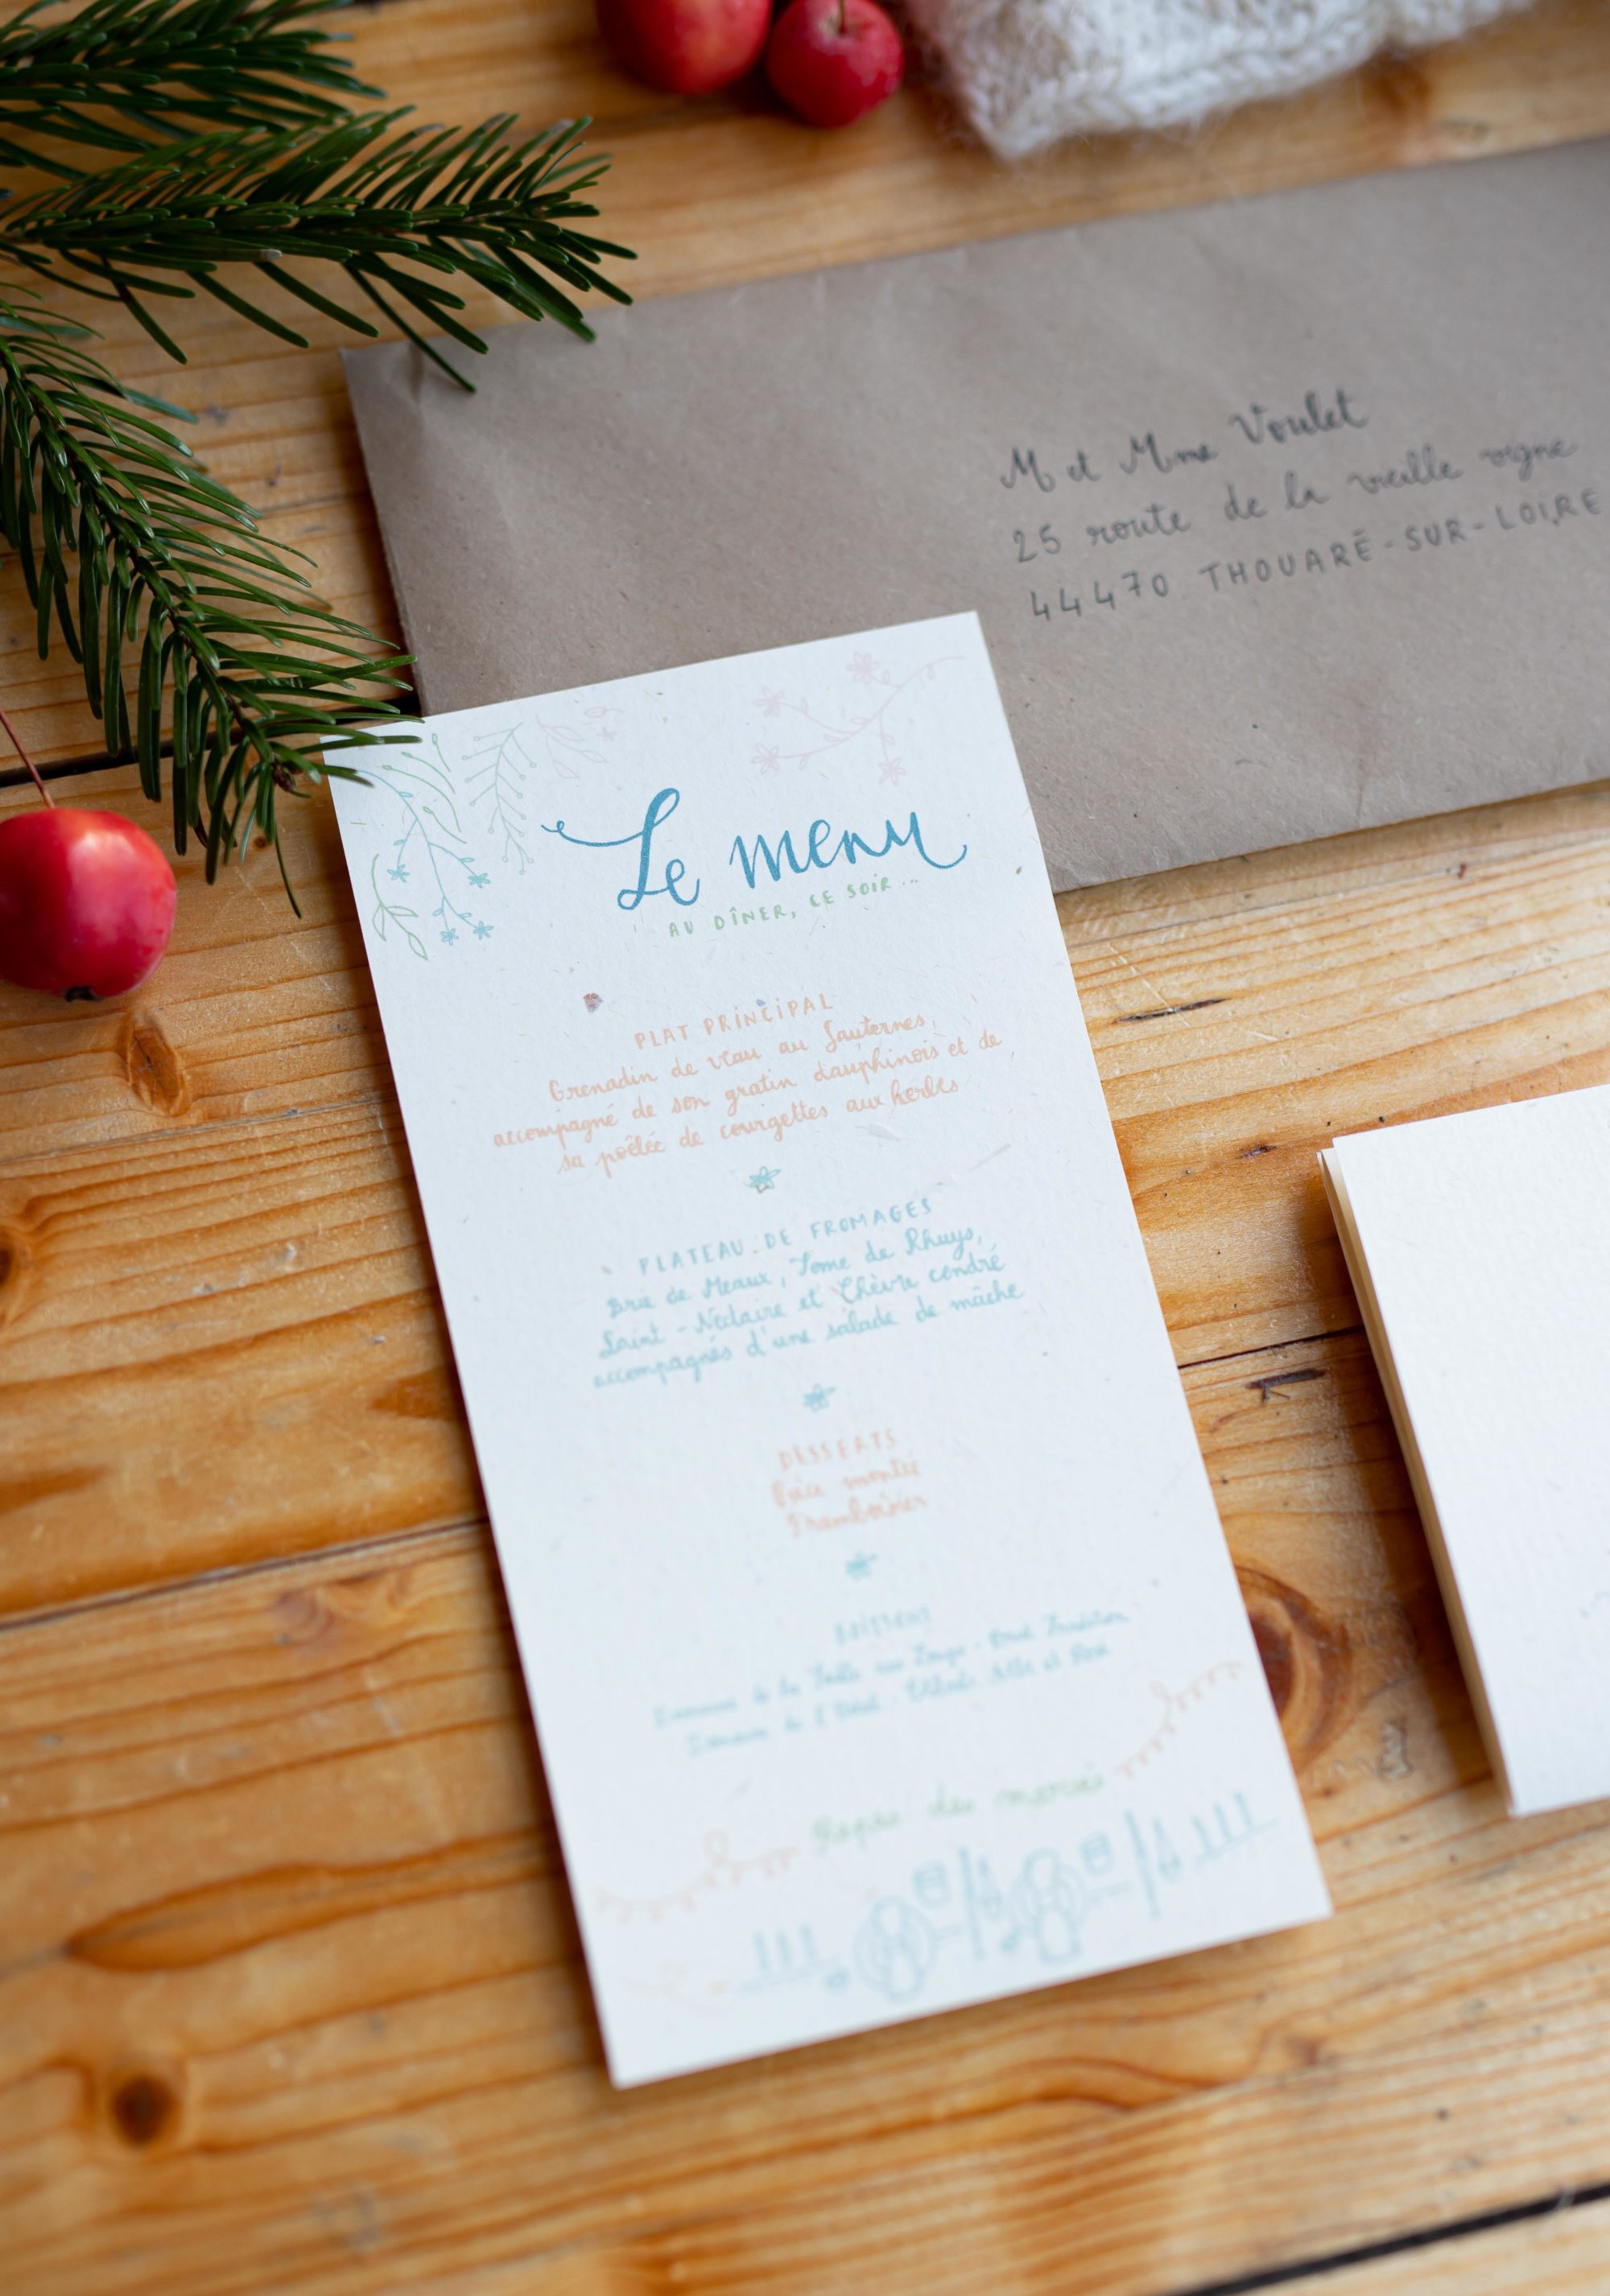 M et Mme Voulet
25 route de la vieille vigne
44470 THOUARÉ-SUR-LOIRE
Le menu
AU DÎNER, CE SOIR...
PLAT PRINCIPAL
Grenadin de veau au Sauternes,
accompagné de son gratin dauphinois et de
sa poêlée de courgettes aux herbes
PLATEAU DE FROMAGES
Brie de Meaux, Tome de Rhuys,
Saint-Nectaire et Chèvre cendré
accompagnés d'une salade de mâche
DESSERTS
Pièce montée
Framboisier
BOISSONS
Domaine de la
Domaine de
Repas des mariés